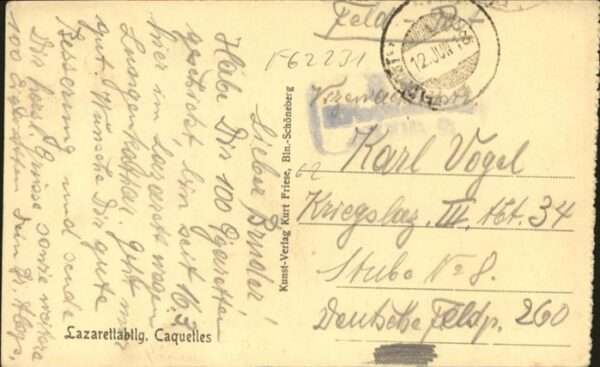 Feld - Post
12. JUN. 16
F62231
62
Vizewachtmstr.
Karl Vogel
Kriegslaz. III. Abt. 34
Stube No 8.
Deutsche Feldp. 260
Kunst-Verlag Kurt Friese, Bln.-Schöneberg
Lieber Bruder!
Habe Dir 100 Zigaretten
geschickt bin seit 16.5
hier im Lazarett wegen
Lungenkathar. Geht mir
gut. Wünsche Dir gute
Besserung und sende
Dir herzl. Grüsse sowie weitere
100 Zigaretten Dein Br.
Lazarettabtlg. Caquelles